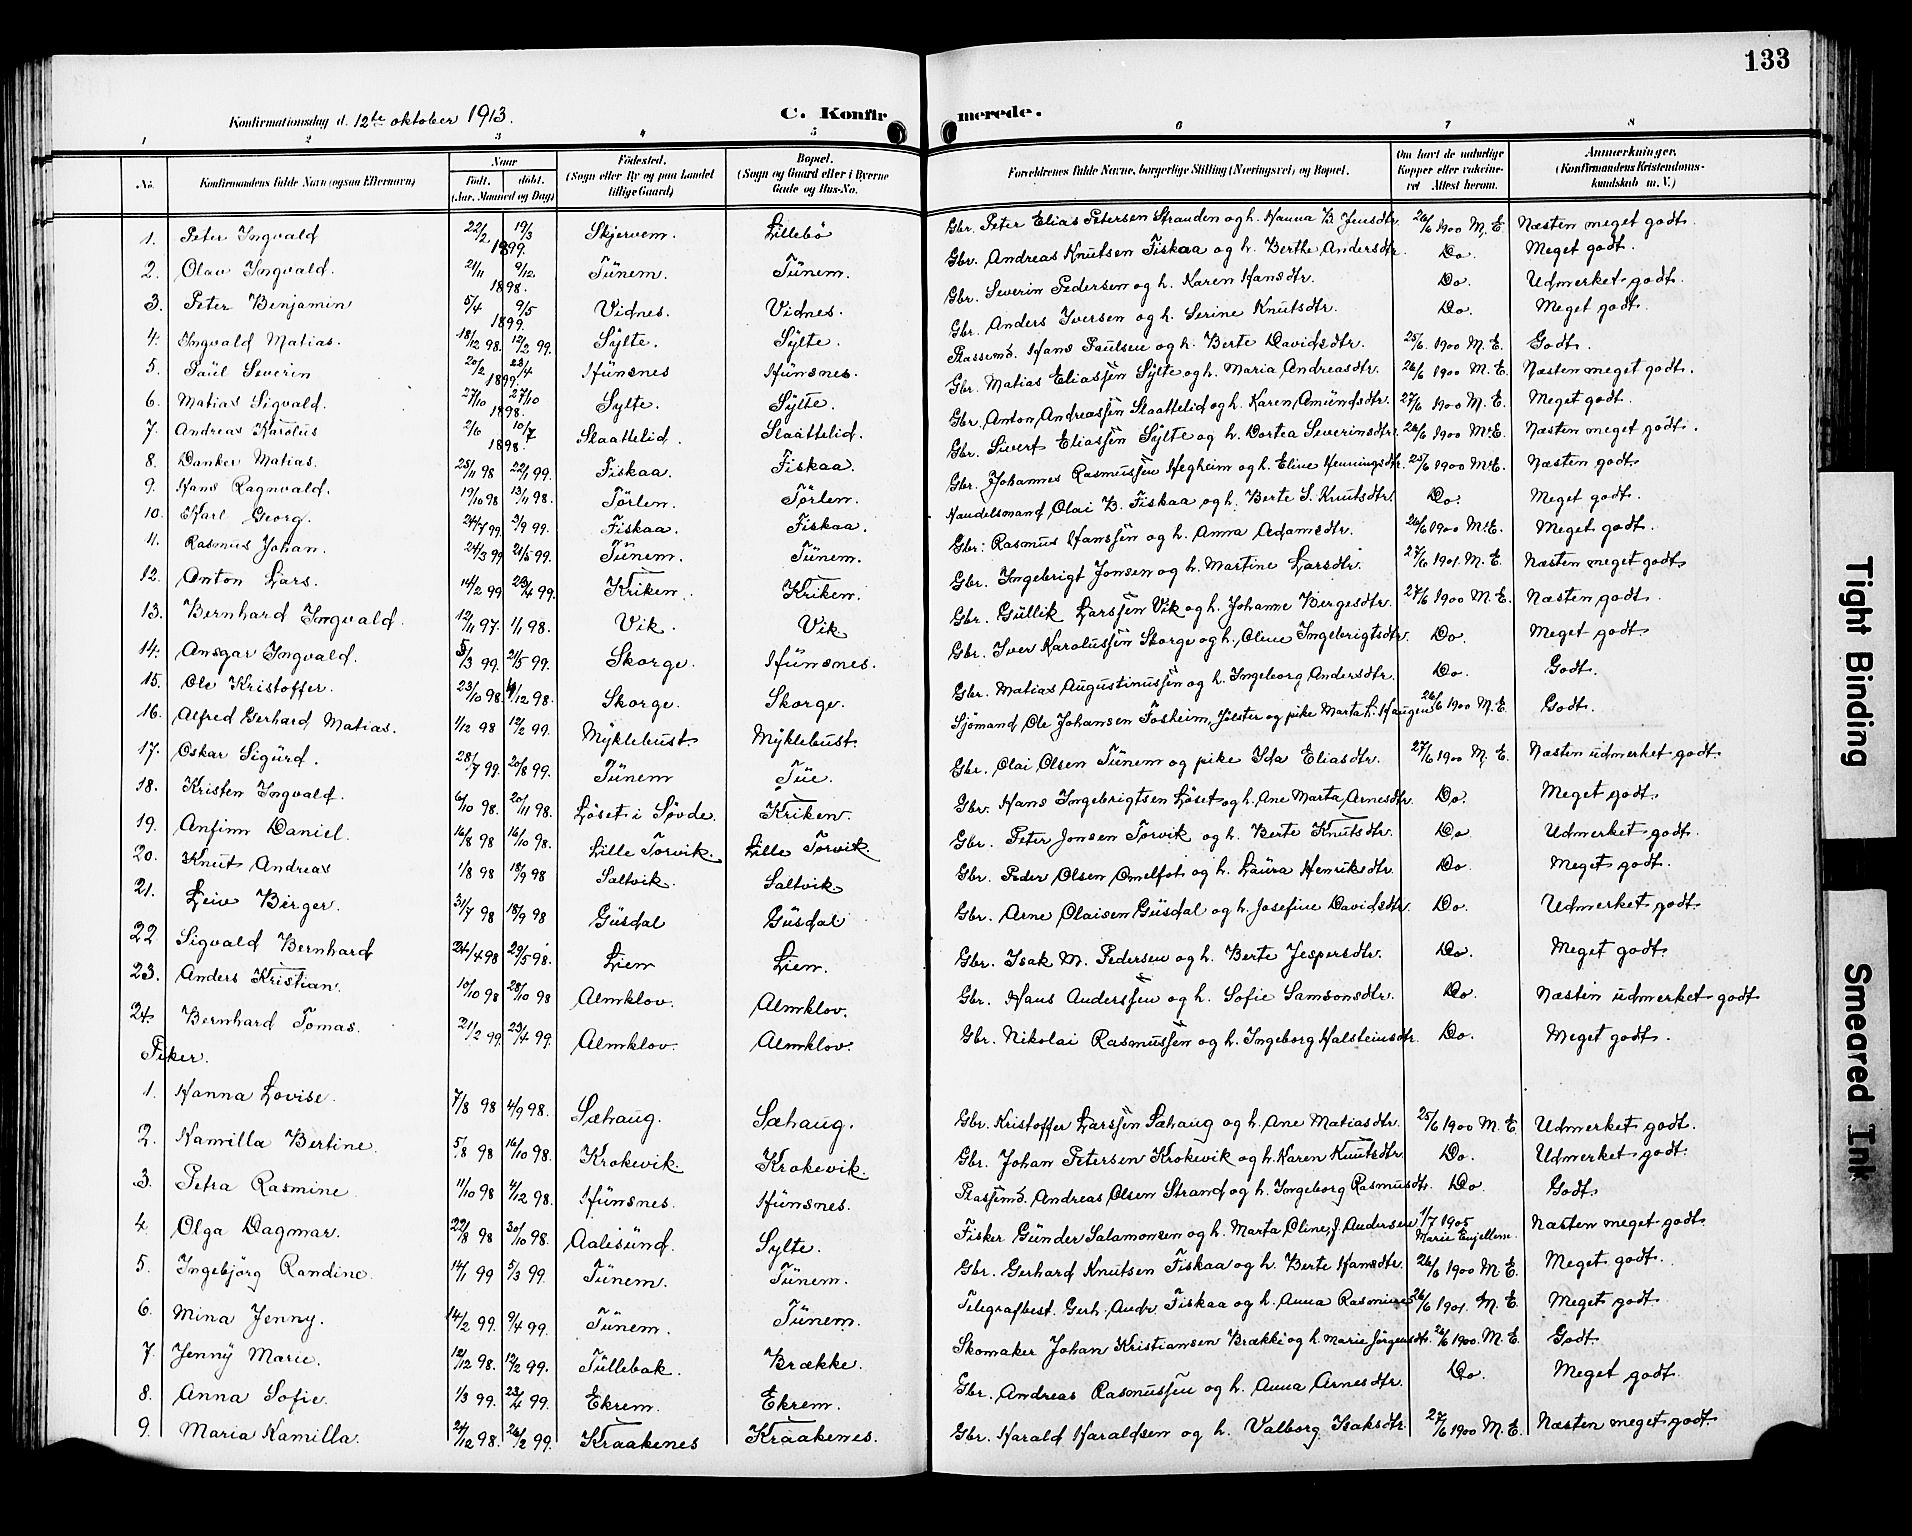 133
Konfirmationsdag d. 12te oktober 1913. C. Konfirmerede.
1 2 3 4 5 6 7 8
No. Konfirmandens fulde Navn (ogsaa Efternavn) Naar Født. døbt. (Aar, Maaned og Dag) Fødested. (Sogn eller By og paa Landet tillige Gaard) Bopæl. (Sogn og Gaard eller i Byerne Gade og Hus-No. Forældrenes fulde Navne, borgerlige Stilling (Næringsvei) og Bopæl. Om havt de naturlige Kopper eller vakcineret Attest herom. Anmerkninger. (Konfirmandens Kristendomskundskab m. V.)
1. Peter Ingvald 22/2 19/3 1899. Skjervem. Lillebö Gbr. Peter Elias Petersen Stranden og h. Hanna B. Jensdtr. 26/6 1900 M. E. Næsten meget godt.
2. Olav Ingvald. 21/11 9/12. 1898. Tünem. Tünem. Gbr. Andreas Knutsen Fiskaa og h. Berthe Andersdtr. Do. Meget godt.
3. Peter Benjamin 5/4 9/5 1899. Vidnes. Vidnes. Gbr. Severin Pedersen og h. Karen Hansdtr. Do. Udmerket godt.
4. Ingvald Matias. 18/12 98. 12/2 99. Sylte. Sylte. Gbr. Anders Iversen og h. Serine Knutsdtr. Do. Meget godt.
5. Paül Severin 20/2 23/4 1899. Hünsnes Hünsnes. Plassemd. Hans Paulsen og h. Berte Davidsdtr. 25/6. 1900 M. E. Godt.
6. Matias Sigvald. 27/10 27/10 1898. Sylte. Sylte. Gbr. Matias Eliassen Sylte og h. Maria Andreasdtr. 26/6 1900 M. E. Næsten meget godt.
7. Andreas Karolus 2/6 10/7 1898. Slaattelid. Slaattelid. Gbr. Anton Andreassen Slaattelid og h. Karen Amündsdtr. 27/6 1900 M. E. Meget godt.
8. Danker Matias. 25/11 98 22/1 99. Fiskaa. Fiskaa. Gbr. Sivert Eliassen Sylte og h. Dortea Severinsdtr. 26/6 1900 M. E. Næsten meget godt.
9. Hans Ragnvald. 19/10 98 13/11 98. Törlem. Törlem. Gbr. Johannes Rasmussen Hegheim og h. Eline Henningsdtr. 25/6 1900 M. E. Næsten godt
10. Karl Georg. 24/7 99 3/9 99. Fiskaa. Fiskaa. Handelsmand Olai B. Fiskaa og h. Berte S. Knutsdtr. Do. Meget godt.
11. Rasmus Johan. 24/3 99 21/5 99. Tünem. Tünem. Gbr. Rasmus Hanssen og h. Anna Adamsdtr. 26/6 1900 M. E. Meget godt.
12. Anton Lars. 14/2 99 23/4 99. Kriken. Kriken. Gbr. Ingebrigt Jonsen og h. Martine Larsdtr. 27/6 1901. M. E. Næsten meget godt
13. Bernhard Ingvald. 12/11 97. 1/1 98. Vik. Vik Gbr. Güllik Larssen Vik og h. Johanne Bergesdtr. 27/6 1900 M. E. Næsten godt.
14. Ansgar Ingvald. 5/3 99. 21/5 99. Skorge. Hünsnes. Gbr. Iver Karolussen Skorge og h. Oline Ingebrigtsdtr. Do. Meget godt
15. Ole Kristoffer. 23/10 98. 4/12 98. Skorge. Skorge. Gbr. Matias Augustinussen og h. Ingeborg Andersdtr. Do. Godt.
16. Alfred Gerhard Matias. 1/12 98 12/2 99. Myklebust. Myklebust. Sjömand Ole Johansen Fosheim, Jölster og pike Marta L. Haugen 26/6 1900 M. E. Godt.
17. Oskar Sigürd. 28/7 99. 20/8 99. Tünem Tüe. Gbr. Olai Olsen Tünem og pike Ida Eliasdtr. 27/6 1900 M. E. Næsten udmerket godt.
18. Kristen Ingvald. 6/10 98. 20/11 98. Löset i Søvde. Kriken. Gbr. Hans Ingebrigtsen Löset og h. Ane Marta Arnesdtr. Do. Meget godt.
19. Anfinn Daniel. 16/8 98 16/10 98. Lille Torvik. Lille Torvik. Gbr. Peter Jonsen Torvik og h. Berte Knutsdtr. Do Udmerket godt.
20. Knut Andreas 1/8 98 18/9 98 Saltvik. Saltvik Gbr. Peder Olsen Omelfot og h. Laüra Henriksdtr. Do Meget godt.
21. Leiv Birger. 31/7 98 18/9 98 Güsdal Güsdal Gbr. Arne Olaisen Güsdal og h. Josefine Davidsdtr. Do. Udmerket godt.
22 Sigvald Bernhard 24/4 98 29/5 98. Liem Liem. Gbr. Isak M. Pedersen og h. Berte Jespersdtr. Do. Meget godt.
23. Anders Kristian. 10/10 98 28/10 98 Almklov. Almklov. Gbr. Hans Anderssen og h. Sofie Samsonsdtr. Do. Næsten udmerket godt
24. Bernhard Tomas. 21/2 99. 23/4 99. Almklov. Almklov. Gbr. Nikolai Rasmussen og h. Ingeborg Halsteinsdtr. Do. Meget godt.
Piker.
1. Hanna Lovise. 7/8 98 4/9 98. Sæhaug. Sæhaug. Gbr. Kristoffer Larssen Sæhaug og h. Ane Matiasdtr. 25/6 1900 M. E. Udmerket godt.
2. Kamilla Bertine. 5/8 98 16/10 98. Krokevik Krokevik. Gbr. Johan Petersen Krokevik og h. Karen Knutsdtr. Do. Udmerket godt.
3. Petra Rasmine 11/10 98 4/12 98. Hünsnes. Hünsnes. Plassemd. Andreas Olsen Strand og h. Ingeborg Rasmusdtr. Do. Godt.
4. Olga Dagmar. 22/8 98 30/10 98. Aalesünd. Sylte. Fisker Günder Salamonsen og h. Marta Oline J. Andersen 1/7 1905 Marie Enjellem. Næsten meget godt.
5. Ingebjörg Randine. 14/1 99 5/3 99. Tünem. Tünem. Gbr. Gerhard Knutsen Fiskaa og h. Berte Hansdtr. 26/6 1900 M. E. Meget godt.
6. Mina Jenny. 14/2 99. 9/4 99. Tünem. Tünem. Telegrafbest. Gerh. Andr. Fiskaa og h. Anna Rasmines 26/6 1901. M. E. Meget godt.
7. Jenny Marie. 12/12 98. 12/2 99. Tüllebak. Brække. Skomaker Johan Kristiansen Brække og h. Marie Jörgensdtr. 26/6 1900. M. E. Godt.
8. Anna Sofie. 1/3 99. 23/4 99. Ekrem. Ekrem. Gbr. Andreas Rasmussen og h. Anna Arnesdtr. Do. Meget godt.
9. Maria Kamilla. 24/12 98. 26/2 99. Kraakenes Kraakenes. Gbr. Harald Haraldsen og h. Valborg Isaksdtr. 27/6 1900 M. E. Næsten meget godt.
Tight Binding
Smeared Ink